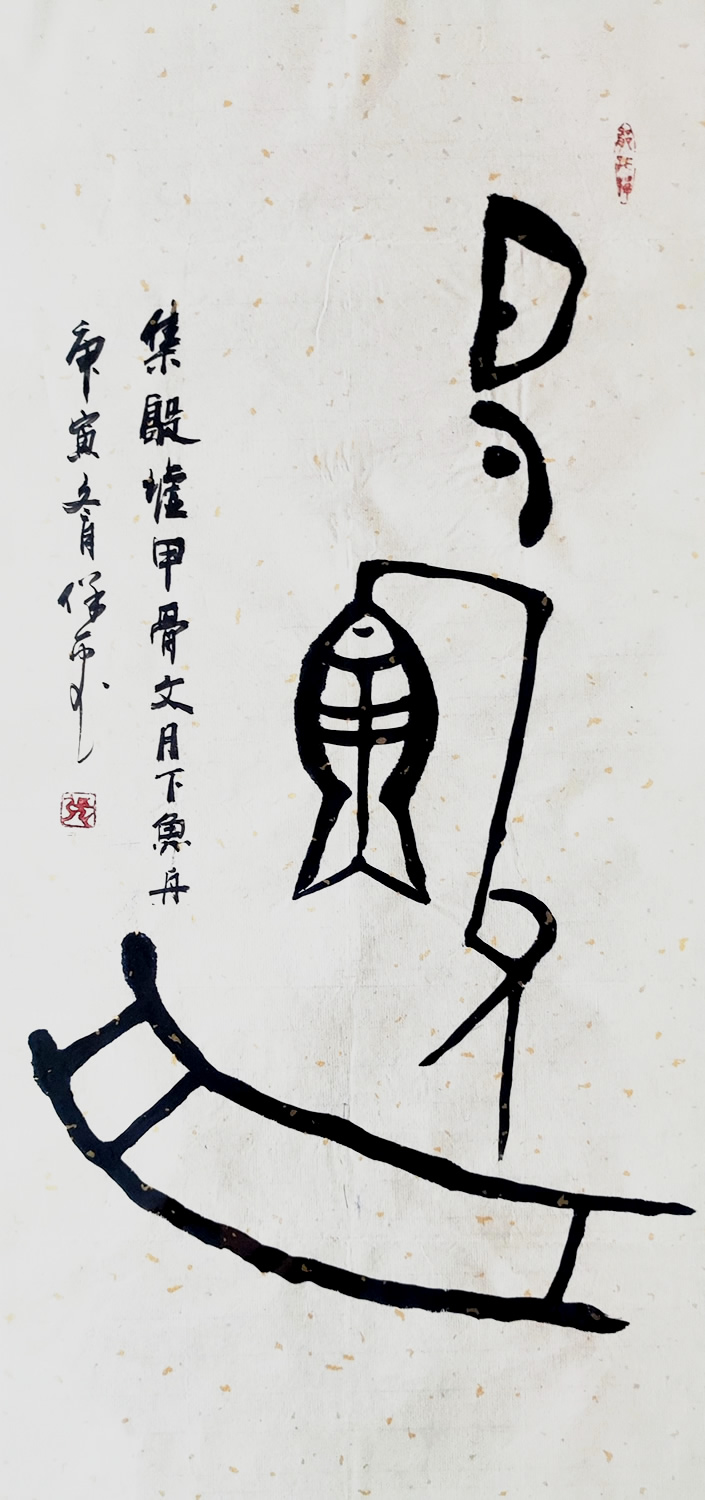 月下漁舟
集殷墟甲骨文月下魚舟
庚寅冬月保